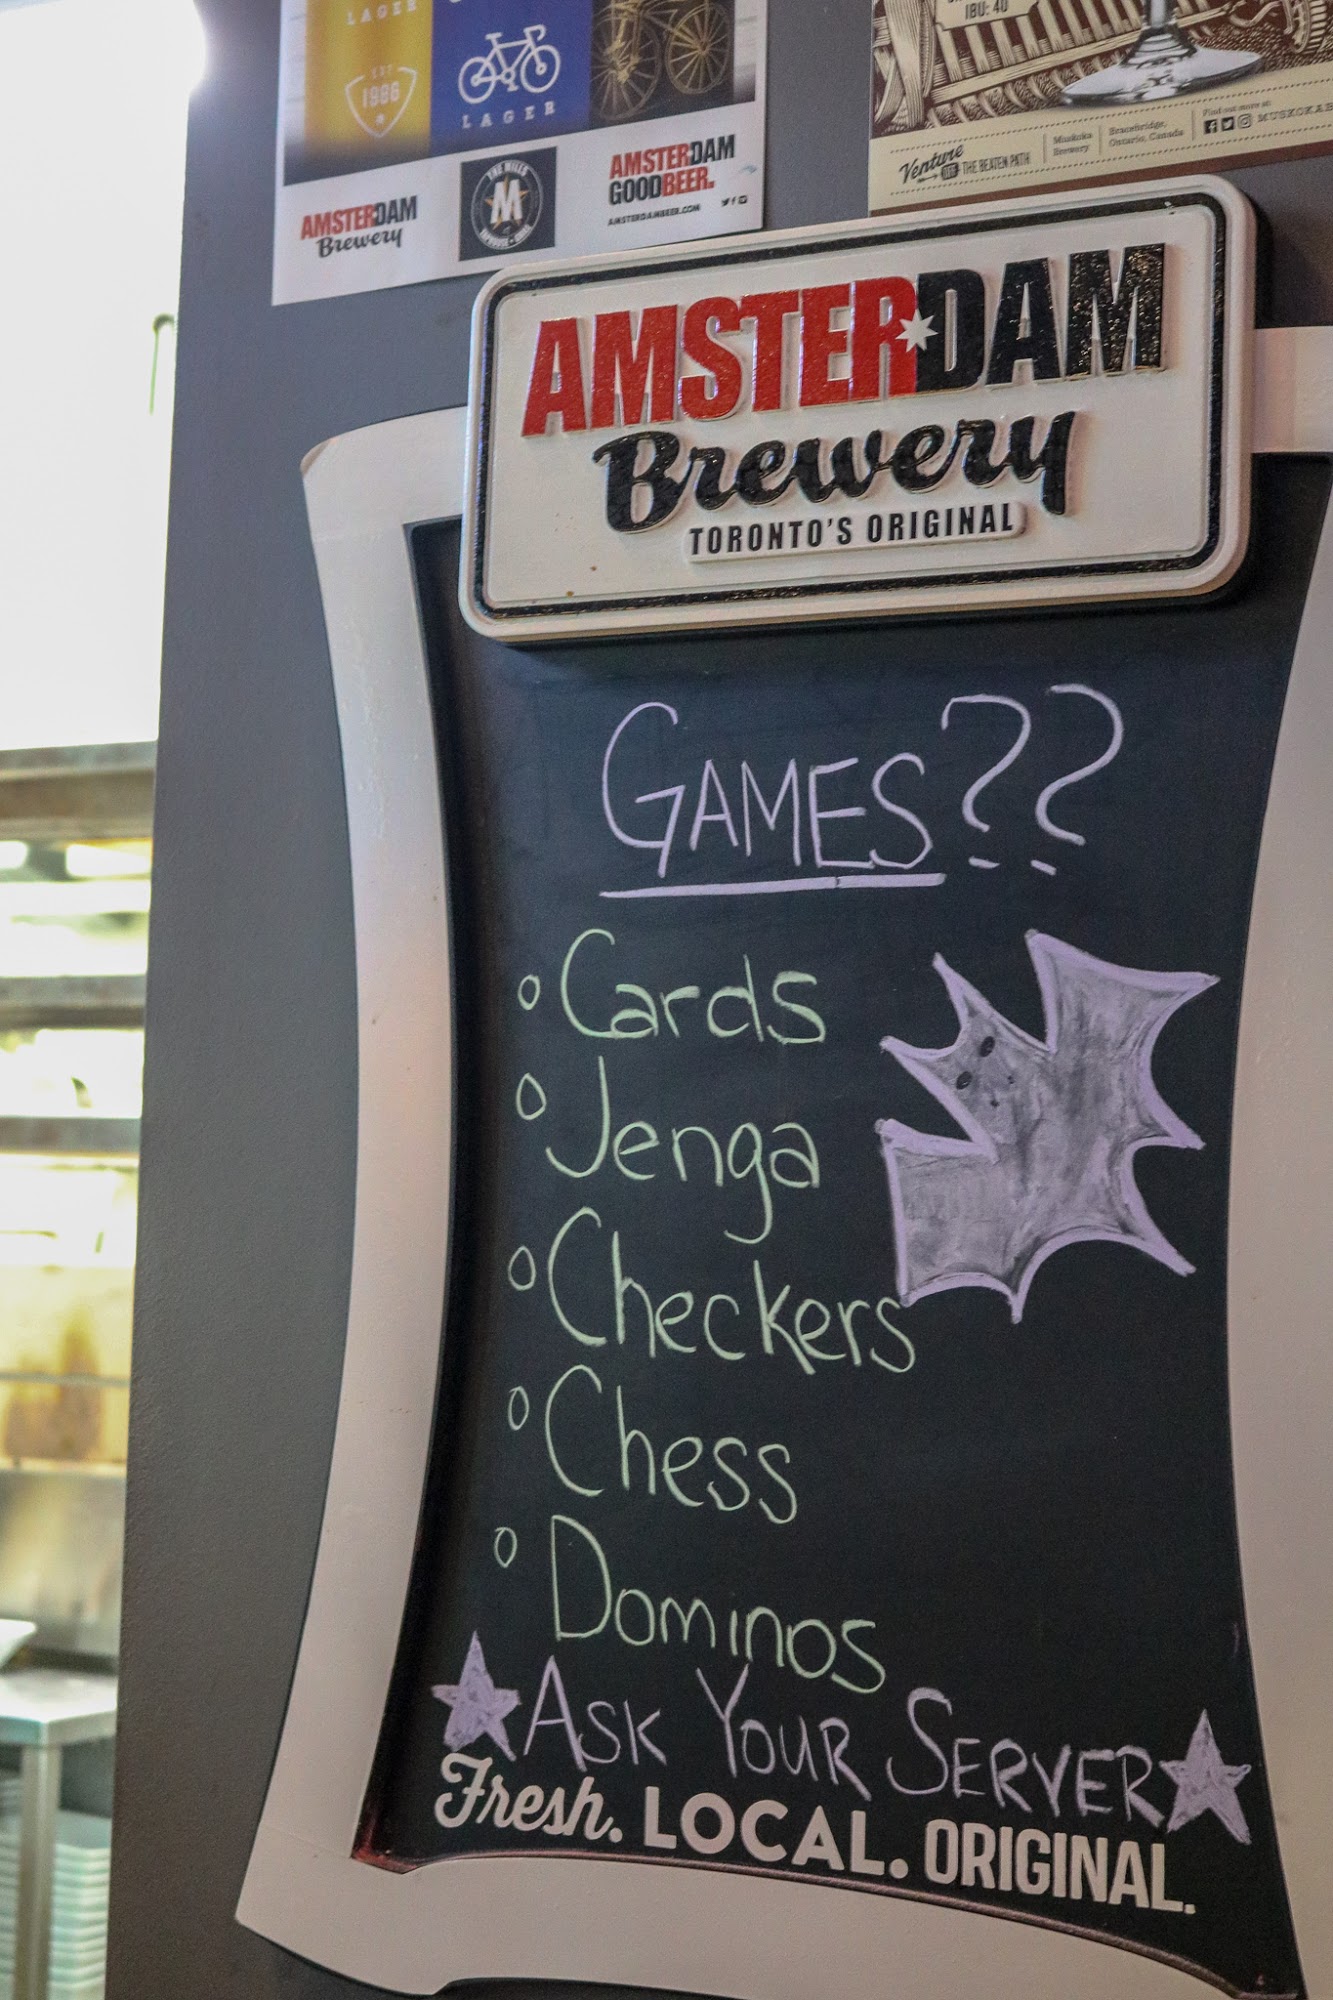 LAGER
EST
1986
LAGER
AMSTERDAM
Brewery
THE MILLS
M
AMSTERDAM
GOODBEER.
AMSTERDAMBEER.COM
IBU: 40
Venture OFF THE BEATEN PATH
Muskoka
Brewery
Bracebridge,
Ontario, Canada
Find out more at:
AMSTERDAM
Brewery
TORONTO'S ORIGINAL
GAMES??
Cards
Jenga
Checkers
Chess
Dominos
ASK YOUR SERVER
Fresh. LOCAL. ORIGINAL.